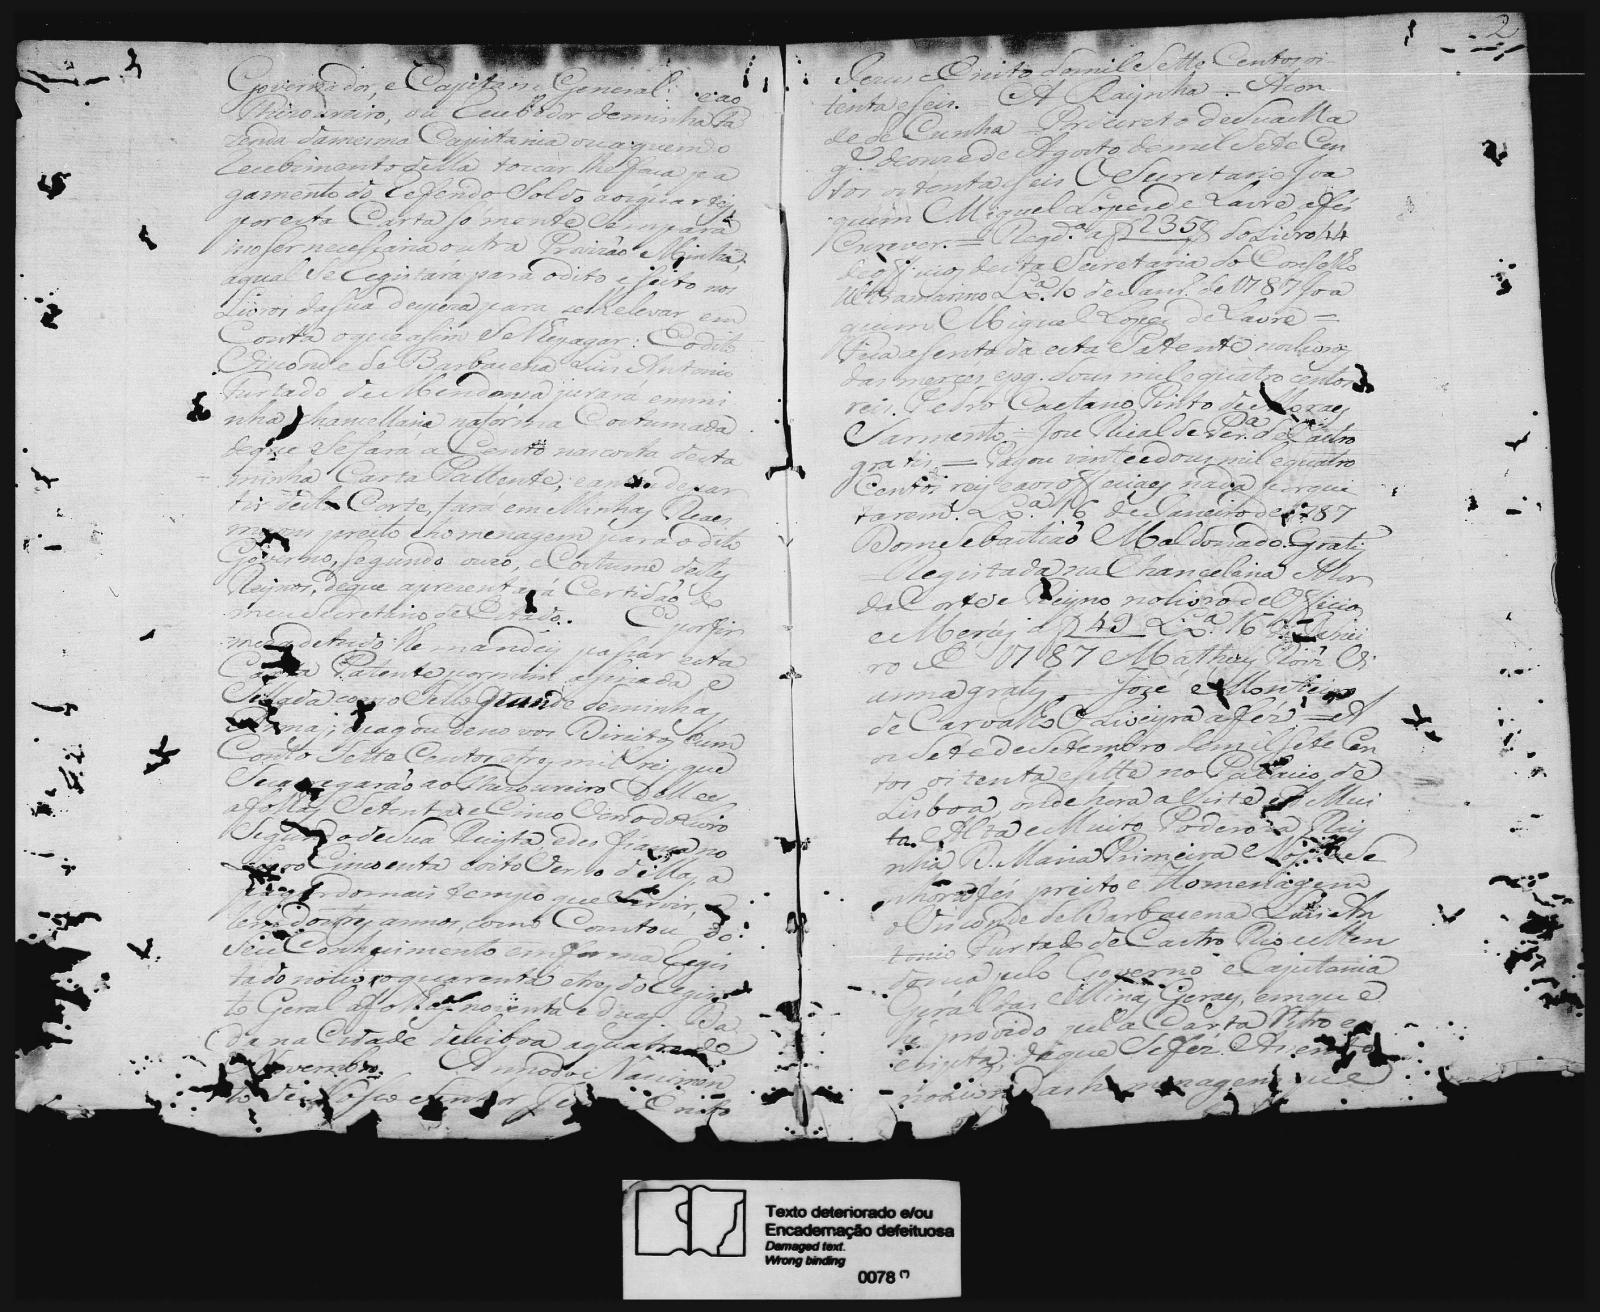 Governador, e Capitam General: e ao
Thizoureiro, ou Recebedor de minha Fa
zenda da mesma Capitania ou a quem o
Recebimento della toccar lhe faca pa
gamento do referido Soldo aos quarteis
por esta Carta somente sem para
isso ser necessaria outra Provizão Minha,
a qual se registará para o dito efeito nos
Livros da sua despeza para se lhe levar em
Conta o que asim se lhe pagar: E o dito
Visconde de Barbacena Luis Antonio
Furtado de Mendonsa jurará em mi
nha Chancellaria na fórma Costumada
de que se fará acento nas costas desta
minha Carta Pattente, e antes de par
tir desta Corte, fará em Minhas Reaes
maons preito e homenagem para o dito
Governo, segundo o uzo, e Costume destes
Reynos, de que aprezentará Certidão do
meu Secretario de Estado. E por fir
meza de tudo lhe mandei passar esta
Carta Patente por mim asinada e
Sellada com o Sello grande de minhas
Armas; e pagou de novos Direitos hum
Conto Sette Centos e tres mil reis que
Se carregarão ao Thezoureiro
a folhas Setenta e Cinco Verso do Livro
Segundo de sua Receita e deo fiança no
Livro Cincoenta e oito Verso della, a
pagar do mais tempo que servir,
alem dos tres annos, como Constou do
Seu Conhecimento em forma Regis
tado no livro quarenta e tres do Regis
to Geral a folhas noventa e duas Da
da na Cidade de Lisboa a quatro de
Novembro. Anno do Nascimen
to de Nosso Senhor Jezus Cristo
2
Jezus Cristo de mil Sette Centos oi
tenta e seis. = A Raynha = A Con
de de Cunha = Por Decreto de Sua Ma
g.e de onze de Agosto de mil Sete Cen
tos oitenta e seis O Secretario Joa
quim Miguel Lopes de Lavre a fes
Escrever. = Regd.a a f 235 do Livro 44
de officios desta Secretaria do Conselho
Ultramarino Lx.a 10 de Janr.o de 1787 Joa
quim Miguel Lopes de Lavre =
Fica asentada esta Patente nos livros
das merces e pg. dous mil e quatro centos
reis. Pedro Caetano Pinto de Moraes
Sarmento = Joze Ricalde Per.a de Castro
gratis = Pagou vinte e dous mil e quatro
Centos reis e aos officiaes nada por qui
tarem. Lx.a 16 de Janeiro de 1787
Dom Sebastiaõ Maldonado. Gratis
= Registada na Chancelaria Mor
da Corte e Reyno no livro de Officios
e Merces a f 149 Lx.a 16 de Janei
ro D 1787 Matheus Roiz Vi
anna gratis. = José Monteiro
de Carvalho e Oliveyra a fez = A
os Sete de Setembro de mil Sete Cen
tos oitenta e sette no Palacio de
Lisboa, onde hora asiste a Mui
to Alta e Muito Poderoza Ray
nha D. Maria Primeira Nossa Se
nhora fes preito e Homenagem
o Visconde de Barbacena Luis An
tonio Furtado de Castro Rio e Men
donsa pelo Governo e Capitania
Geral das Minas Geraes, em que é
he provido pela Carta Retro e
escripta, de que se fez Asento
no Livro das homenagens que e
Texto deteriorado e/ou
Encadernação defeituosa
Damaged text.
Wrong binding
0078 (*)